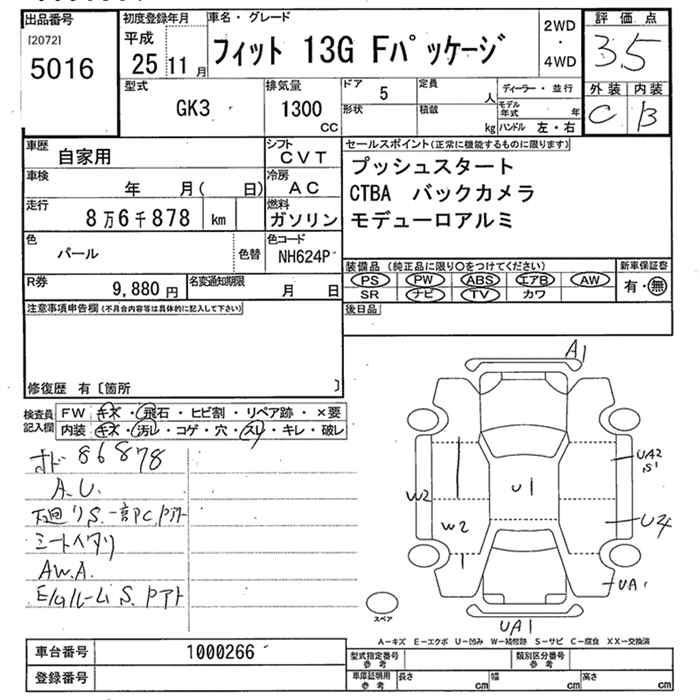 出品番号
[2072]
5016
初度登録年月
平成
25 11 月
車名・グレード
フィット 13G Fパッケージ
2WD
・
4WD
評価点
3.5
外装 内装
C B
型式
GK3
排気量
1300
CC
ドア 5
形状
定員 人
積載 kg
ディーラー・並行
モデル年式 年
ハンドル 左・右
車歴
自家用
シフト
CVT
車検
年 月( 日)
冷房
AC
走行
8万6千878 km
燃料
ガソリン
色
パール
色替
色コード
NH624P
R券
9,880 円
名変通知期限
月 日
セールスポイント(正常に機能するものに限ります)
プッシュスタート
CTBA バックカメラ
モデューロアルミ
装備品 (純正品に限り○をつけてください)
PS PW ABS エアB AW
SR ナビ TV カワ
新車保証書
有・無
後日品
注意事項申告欄(不具合内容等は具体的に記入して下さい)
修復歴 有〔箇所 〕
検査員記入欄
FW キズ・飛石・ヒビ割・リペア跡・×要
内装 キズ・汚レ・コゲ・穴・スレ・キレ・破レ
86878
A.U.
シートヘタリ
A.W.A.
A1
UA2
S1
U1
W2
W2
U4
UA1
UA1
スペア
A-キズ E-エクボ U-凹み W-補修跡 S-サビ C-腐食 XX-交換済
車台番号 1000266
登録番号
型式指定番号
参考
類別区分番号
参考
車庫証明用
参考
長さ cm 幅 cm 高さ cm